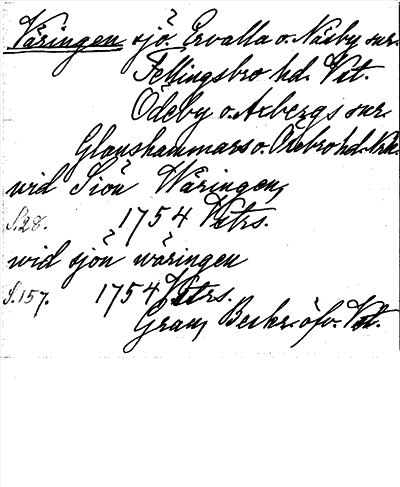 Väringen sjö. Ervalla o. Näsby snr.
Fellingsbro hd. Vst.
Ödeby o. Axbergs snr.
Glanshammars o. Örebro hd. Nrk.
wid Siön Wäringen,
S. 28. 1754 Vstrs.
wid sjön wäringen
S. 157. 1754 Vstrs.
Grau, Beskr. öfv. Vst.